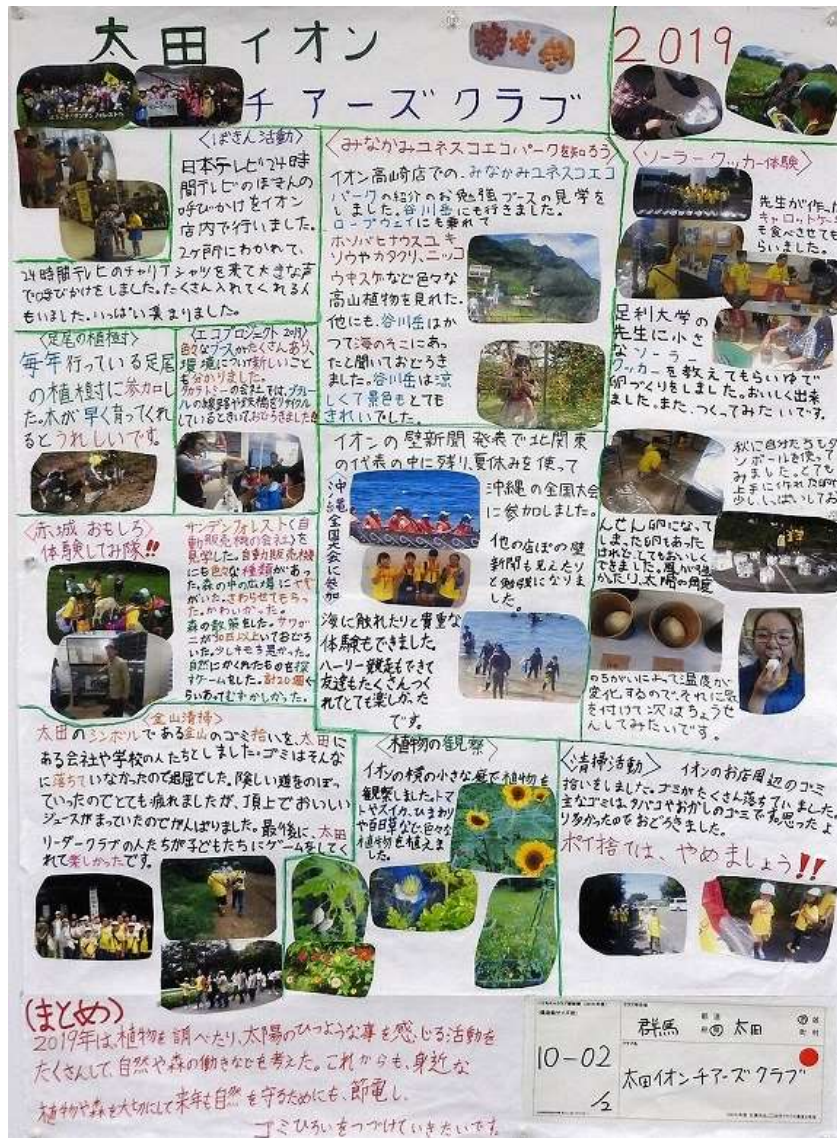 太田イオン
チアーズクラブ
2019
〈ぼきん活動〉
日本テレビ24時
間テレビのぼきんの
呼びかけをイオン
店内で行いました。
2ヶ所にわかれて、
24時間テレビのチャリTシャツを来て大きな声
で呼びかけをしました。たくさん入れてくれる人
もいました。いっぱい集まりました。
〈みなかみユネスコエコパークを知ろう〉
イオン高崎店での、みなかみユネスコエコ
パークの紹介のお勉強ブースの見学を
しました。谷川岳にも行きました。
ロープウェイにも乗れて
ホソバヒナウスユキ
ソウやカタクリ、ニッコ
ウキスゲなど色々な
高山植物を見れた。
他にも、谷川岳はか
つて海のそこにあっ
たと聞いておどろき
ました。谷川岳は涼
しくて景色もとても
きれいでした。
〈ソーラークッカー体験〉
先生が作った
キャロットケーキ
も食べさせても
らいました。
足利大学の
先生に小さ
なソーラー
クッカーを教えてもらいゆで
卵づくりをしました。おいしく出来
ました。また、つくってみたいです。
秋に自分たちもダ
ンボールを使って
みました。とても
上手に作れた卵や
少ししっぱいしてお
んせん卵になって
しまった卵もあった
けれど、とてもおいしく
できました。風が強
かったり、太陽の角度
のちがいによって温度が
変化するので、それに気
を付けて次はちょうせ
んしてみたいです。
〈足尾の植樹〉
毎年行っている足尾
の植樹に参加し
た。木が早く育ってくれ
るとうれしいです。
〈エコプロジェクト2019〉
色々なブースがたくさんあり、
環境について新しいこと
も分かりました。
タカラトミーの会社では、プラレー
ルの線路や鉄橋をリサイクル
しているときいておどろきました
イオンの壁新聞発表で北関東
の代表の中に残り、夏休みを使って
沖縄全国大会に参加
沖縄の全国大会
に参加しました。
他の店ぽの壁
新聞も見えたり
と勉強になりまし
た。
海に触れたりと貴重な
体験もできました。
ハーリー競走もできて
友達もたくさんつく
れてとても楽しかった
です。
〈赤城おもしろ
体験してみ隊!!〉
サンデンフォレスト(自
動販売機の会社)を
見学した。自動販売機
にも色々な種類があっ
た。森の中の広場にヤギ
がいた。さわらせてもらっ
た。かわいかった。
森の散策をした。サワガ
ニが30匹以上いておどろ
いた。少しキモち悪かった。
自然にかくれたものを探
すゲームをした。計20個く
らいあってむずかしかった。
〈金山清掃〉
太田のシンボルである金山のゴミ拾いを、太田に
ある会社や学校の人たちとしました。ゴミはそんな
に落ちていなかったので退屈でした。険しい道をのぼっ
ていったのでとても疲れましたが、頂上でおいしい
ジュースがまっていたのでがんばりました。最後に、太田
リーダークラブの人たちが子どもたちにゲームをしてく
れて楽しかったです。
〈植物の観察〉
イオンの横の小さな庭で植物を
観察しました。トマ
トやスイカ、ひまわり
や百日草など、色々な
植物を植えま
した。
〈清掃活動〉
イオンのお店周辺のゴミ
拾いをしました。ゴミがたくさん落ちていました。
主なゴミは、タバコやおかしのゴミで、思ったよ
り多かったのでおどろきました。
ポイ捨ては、やめましょう!!
(まとめ)
2019年は、植物を調べたり、太陽のひつような事を感じる活動を
たくさんして、自然や森の働きなどを考えた。これからも、身近な
植物や森を大切にして来年も自然を守るためにも、節電し、
ゴミひろいをつづけていきたいです。
10-02
1/2
群馬 県 太田 市
太田イオンチアーズクラブ